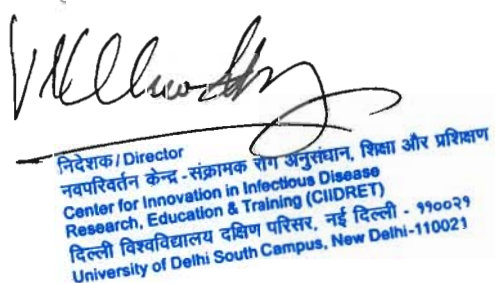 निदेशक/Director
नवपरिवर्तन केन्द्र -संक्रामक रोग अनुसंधान, शिक्षा और प्रशिक्षण
Center for Innovation in Infectious Disease
Research, Education & Training (CIIDRET)
दिल्ली विश्वविद्यालय दक्षिण परिसर, नई दिल्ली - ११००२१
University of Delhi South Campus, New Delhi-110021